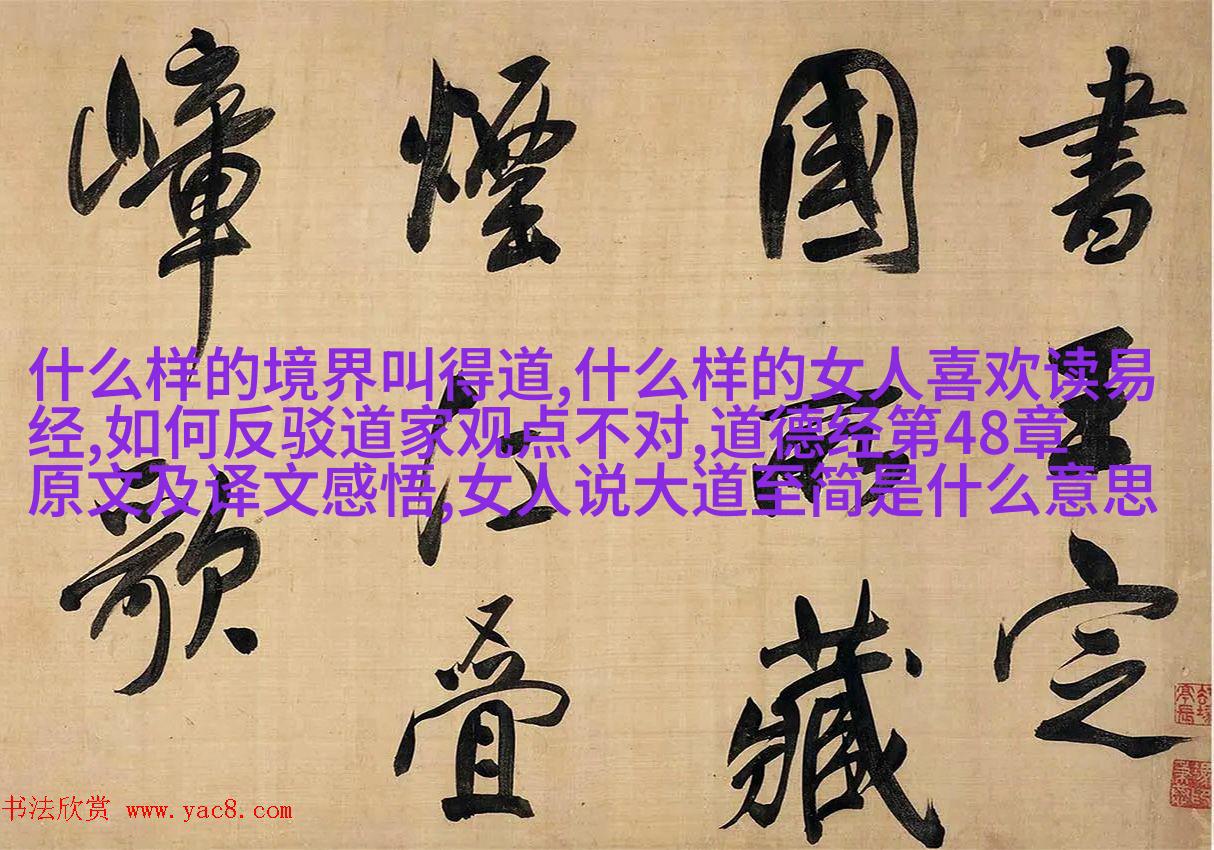 書王定
國所藏
煙江疊
嶂歌
什么样的境界叫得道,什么样的女人喜欢读易
经,如何反驳道家观点不对,道德经第48章
原文及译文感悟,女人说大道至简是什么意思
书法欣赏 www.yac8.com